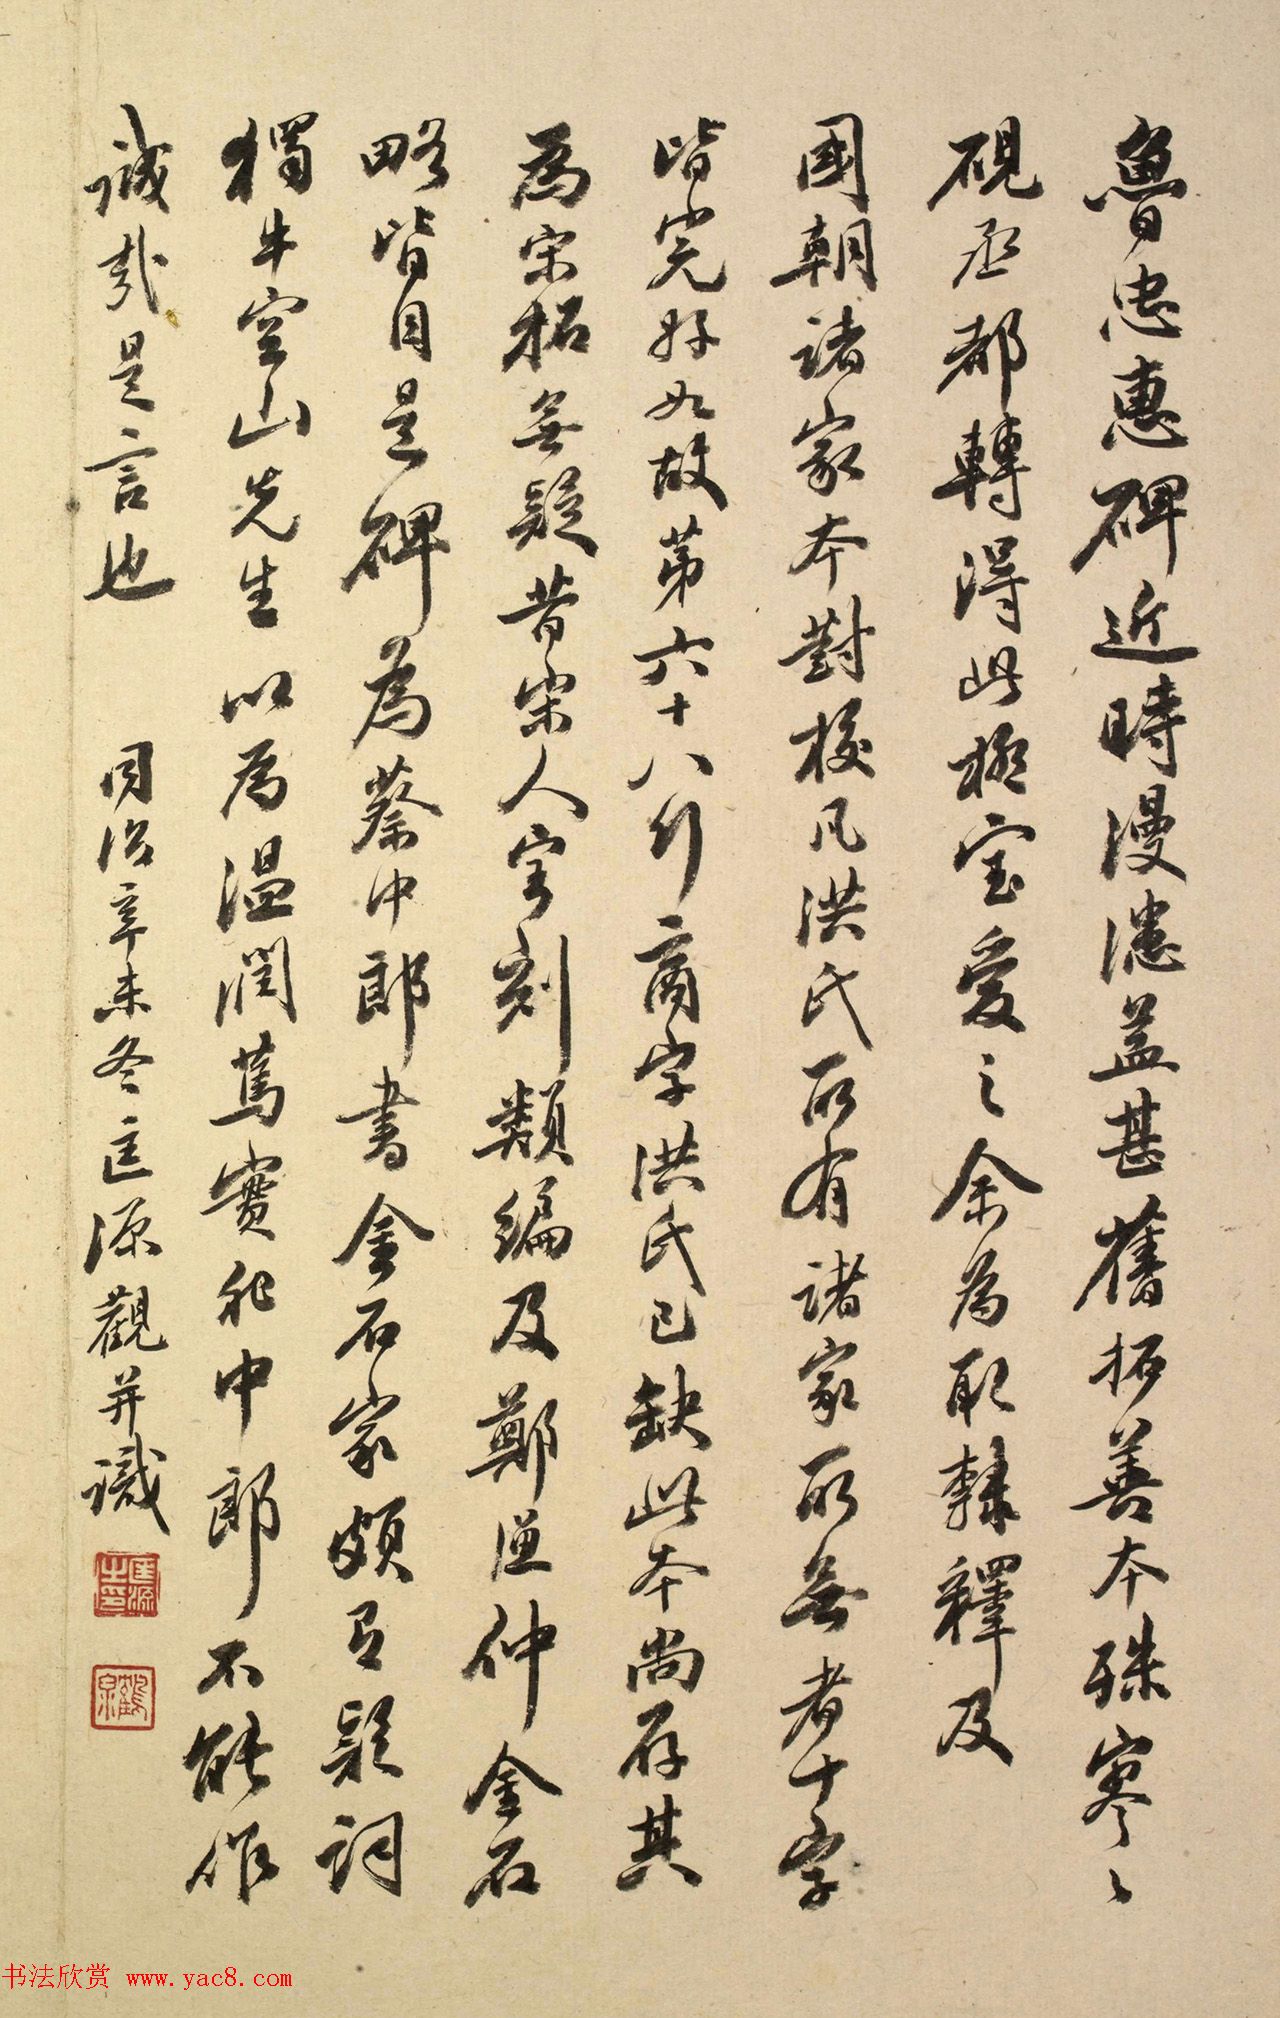 魯忠惠碑近時漫漶益甚舊拓善本殊寥〻
硯丞都轉得此極宝愛之余為取隸釋及
國朝諸家本對校凡洪氏所有諸家所無者十字
皆完好如故第六十八行商字洪氏已缺此本尚存其
為宋拓無疑昔宋人宝刻類編及鄭漁仲金石
略皆目是碑為蔡中郎書金石家頗有疑詞
獨牛空山先生以為温潤篤實非中郎不能作
誠哉是言也 同治辛未冬匡源觀并識
匡源之印
鶴泉
书法欣赏 www.yac8.com